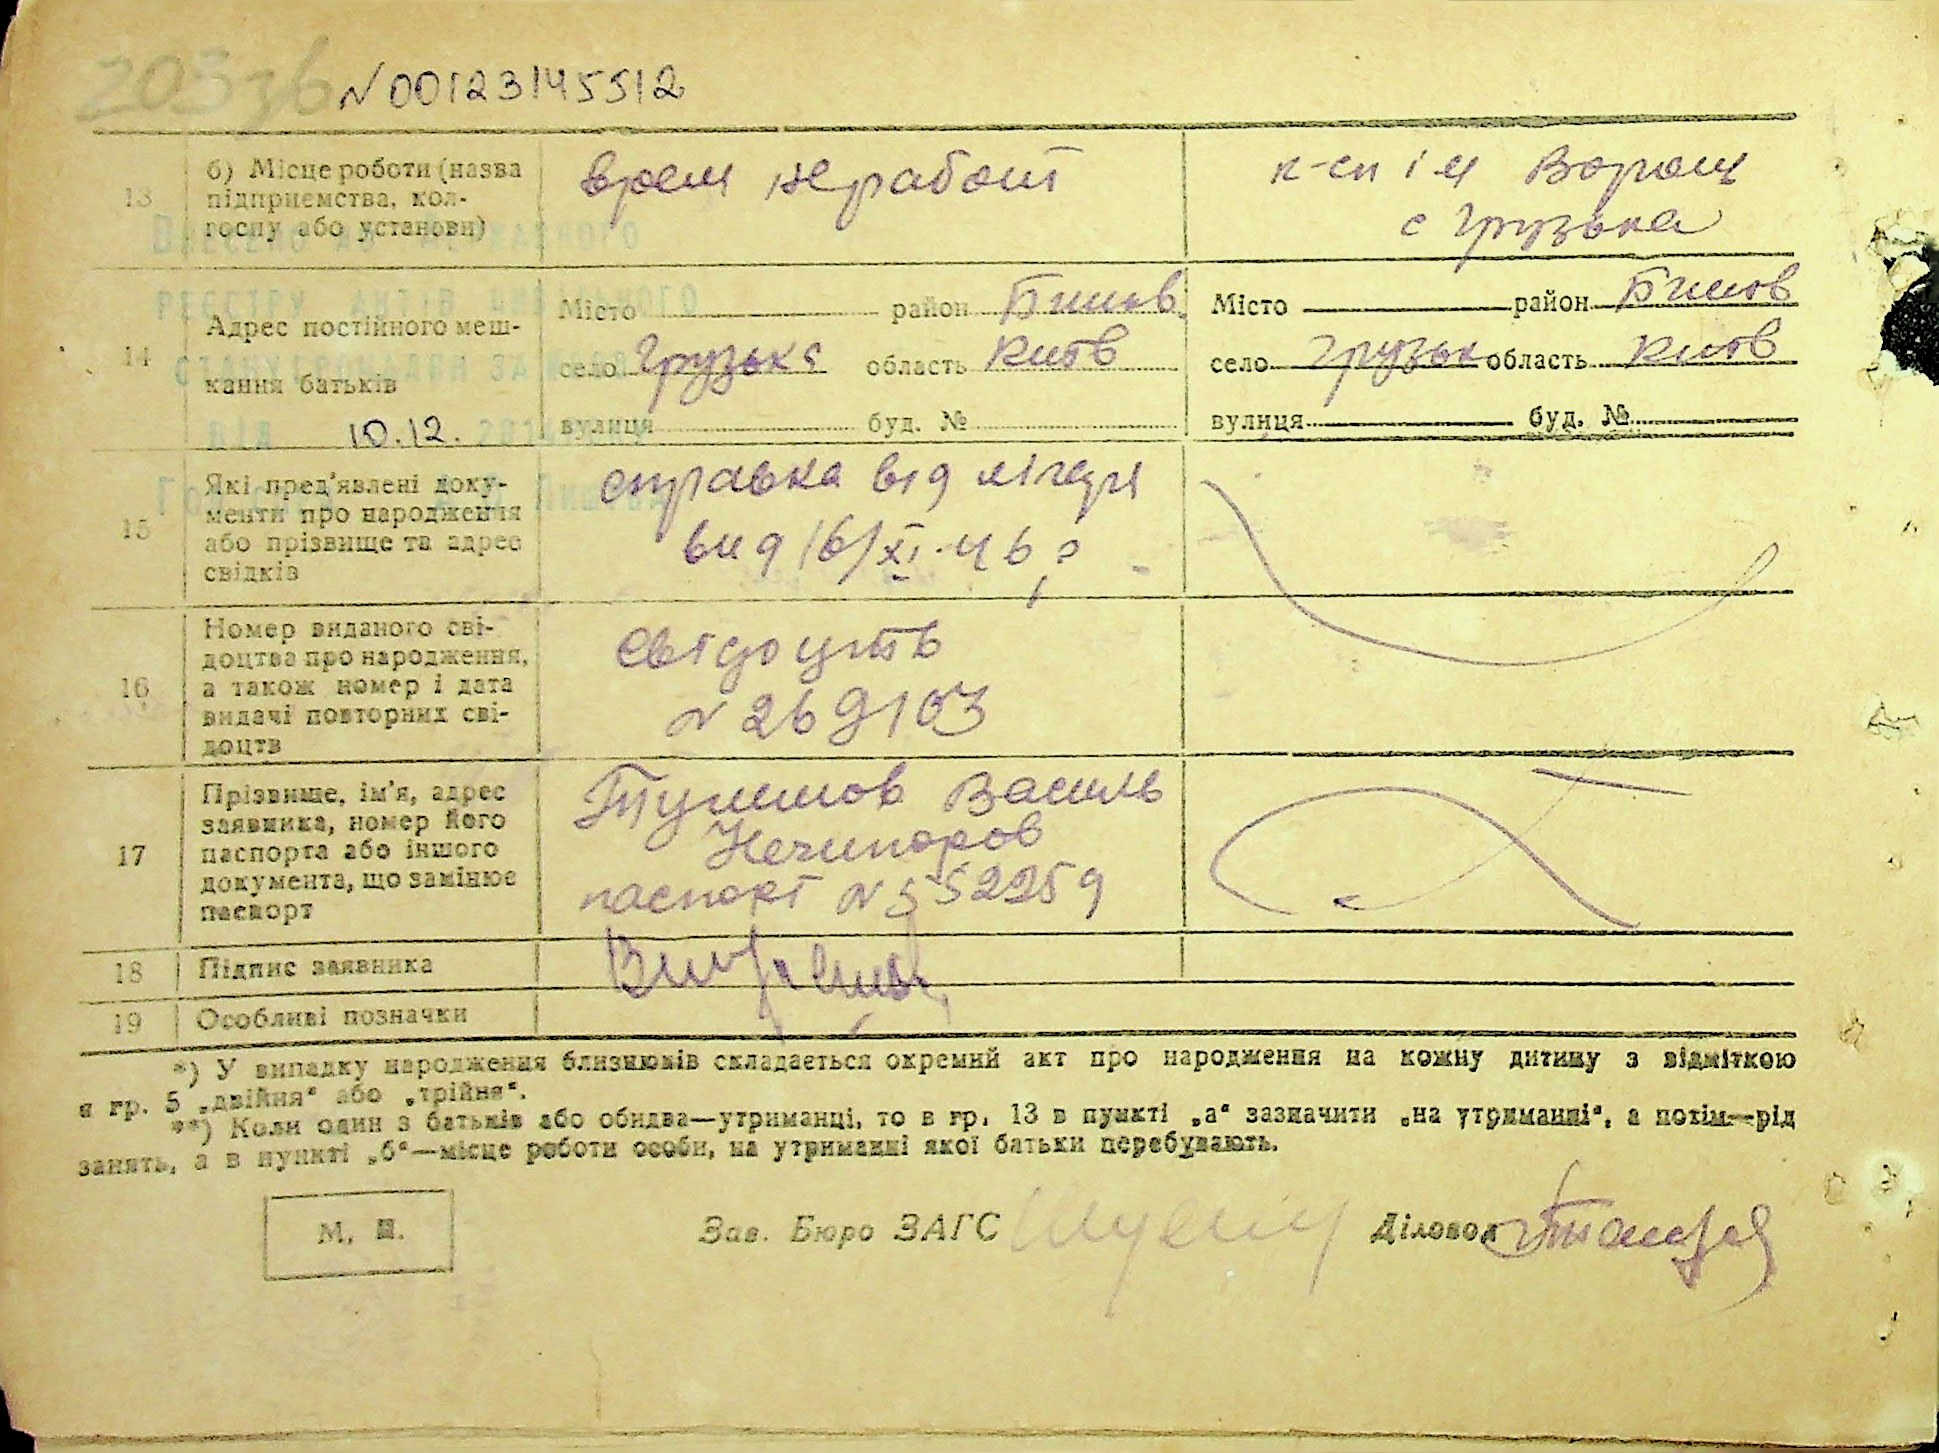 N 00123145512
13
б) Місце роботи (назва
підприємства, кол-
госпу або установи)
врем не работ
к-сп ім Ворош
с Грузька
14
Адрес постійного меш-
кання батьків
Місто район Бишов
село Грузька область Київ
вулиця буд. №
Місто район Бишов
село Грузьк область Київ
вулиця буд. №
10.12.
15
Які пред'явлені доку-
менти про народження
або прізвище та адрес
свідків
справка від лікаря
від 16/XI-46 р
16
Номер виданого сві-
доцтва про народження,
а також номер і дата
видачі повторних сві-
доцтв
свідоцтв
N 269103
17
Прізвище, ім'я, адрес
заявника, номер його
паспорта або іншого
документа, що замінює
паспорт
Василь
Нечипоров
паспорт N 552259
18
Підпис заявника
19
Особливі позначки
*) У випадку народження близнюків складається окремий акт про народження на кожну дитину з відміткою
в гр. 5 „двійня“ або „трійня“.
**) Коли один з батьків або обидва—утриманці, то в гр. 13 в пункті „а“ зазначити „на утриманні“, а потім—рід
занять, а в пункті „б“—місце роботи особи, на утриманні якої батьки перебувають.
М. П.
Зав. Бюро ЗАГС
Діловод